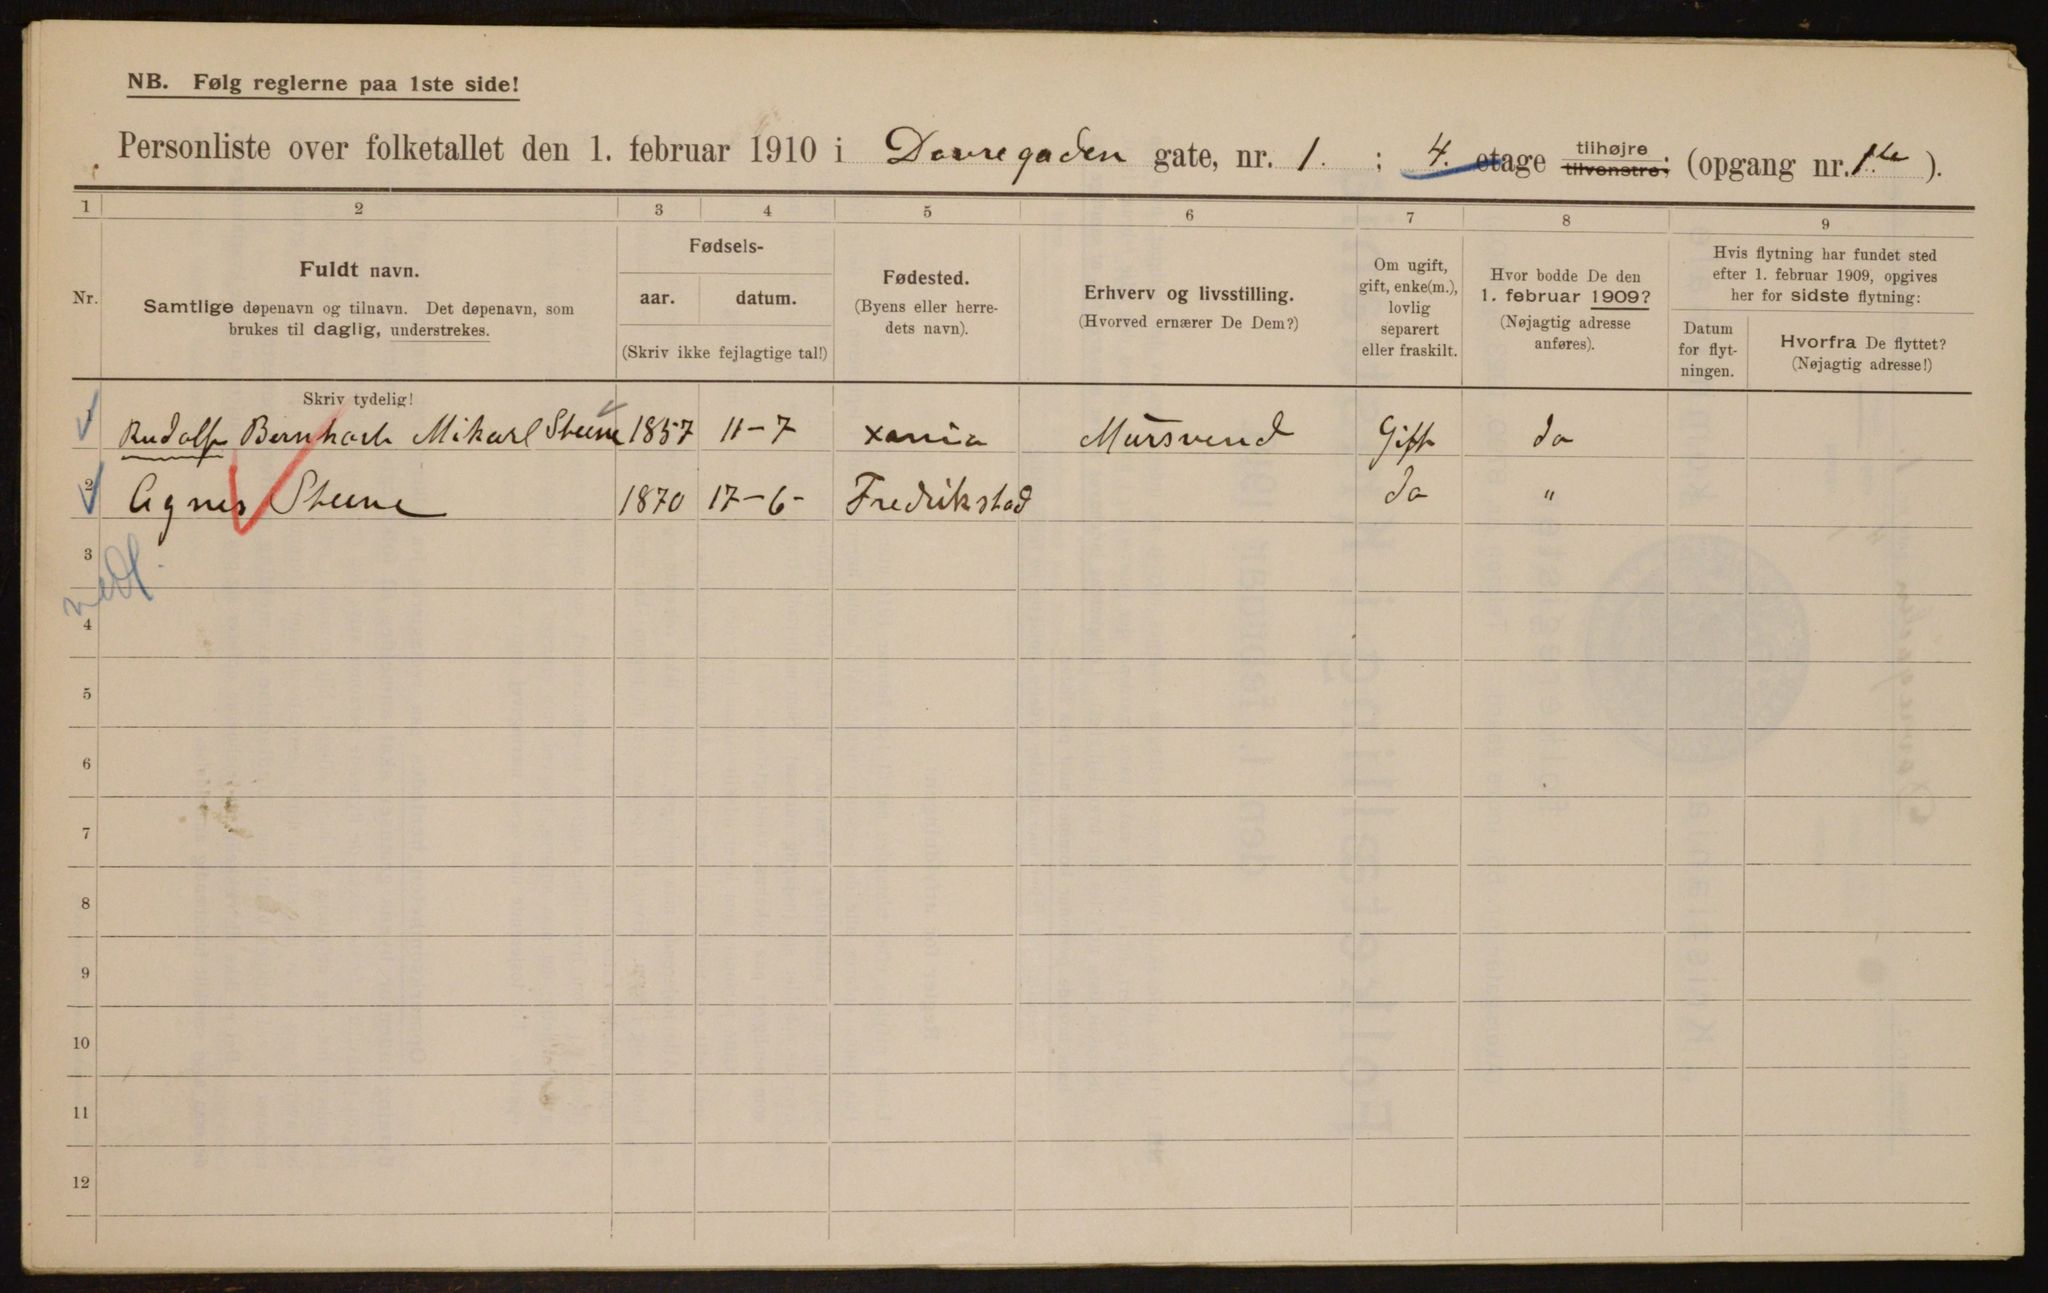 NB. Følg reglerne paa 1ste side!
Personliste over folketallet den 1. februar 1910 i Dovregaden gate, nr. 1. ; 4. etage tilhøjre tilvenstre; (opgang nr. 1ste ).
1 2 3 4 5 6 7 8 9
Nr.
Fuldt navn.
Samtlige døpenavn og tilnavn. Det døpenavn, som
brukes til daglig, understrekes.
Fødsels-
aar. datum.
(Skriv ikke fejlagtige tal!)
Fødested.
(Byens eller herre-
dets navn).
Erhverv og livsstilling.
(Hvorved ernærer De Dem?)
Om ugift,
gift, enke(m.),
lovlig
separert
eller fraskilt.
Hvor bodde De den
1. februar 1909?
(Nøjagtig adresse
anføres).
Hvis flytning har fundet sted
efter 1. februar 1909, opgives
her for sidste flytning:
Datum
for flyt-
ningen.
Hvorfra De flyttet?
(Nøjagtig adresse!)
Skriv tydelig!
1 Rudolf Bernhard Mikael Steene 1857 11-7 Xania Mursvend Gift do
2 Agnes Steene 1870 17-6- Fredrikstad do "
3
4
5
6
7
8
9
10
11
12